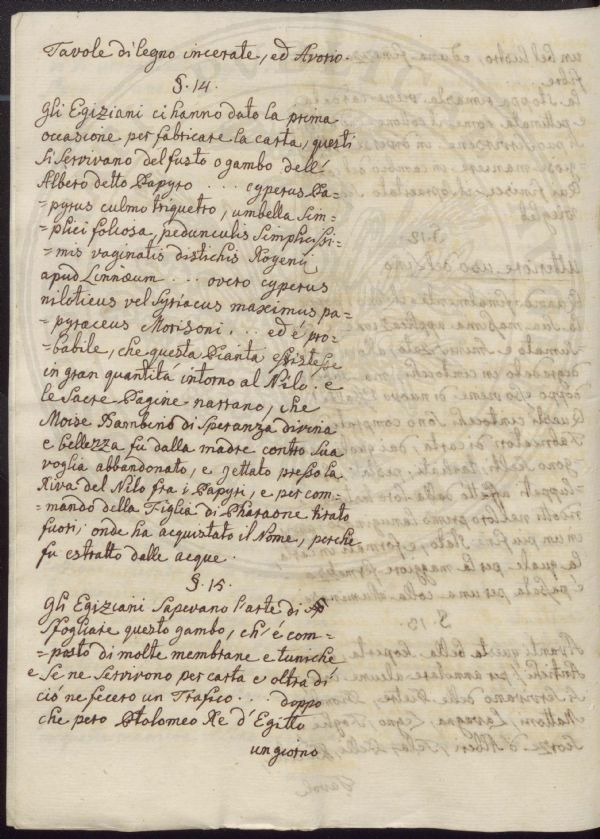 Tavole di legno incerate, ed Avorio.
§. 14.
Gli Egiziani ci hanno dato la prima
occasione per fabricare la carta, questi
si servivano del fusto o gambo dell'
Albero detto Papyro .... cyperus Pa-
=pyrus culmo triquetro, umbella sim-
=plici foliosa, pedunculis simplicissi-
=mis vaginatis distichis Royenii
apud Linnæum ... overo cyperus
niloticus vel Syriacus maximus pa-
=pyraceus Morisoni ... ed é pro-
=babile, che questa Pianta esistesse
in gran quantitá intorno al Nilo. e
le Sacre Pagine narrano, che
Moise Bambino di Speranza divina
e bellezza fu dalla madre contro sua
voglia abbandonato, e gettato presso la
Riva del Nilo fra i Papyri, e per com-
=mando della Figlia di Pharaone tirato
fuori, onde ha acquistato il Nome, perche
fu estratto dalle acque.
§. 15.
Gli Egiziani sapevano l'arte di
sfogliare questo gambo, ch'é com-
=posto di molte membrane e tuniche
e se ne servirono per carta e oltra di
ció ne fecero un Trafico ... doppo
che pero Ptolomeo Re d'Egitto
un giorno